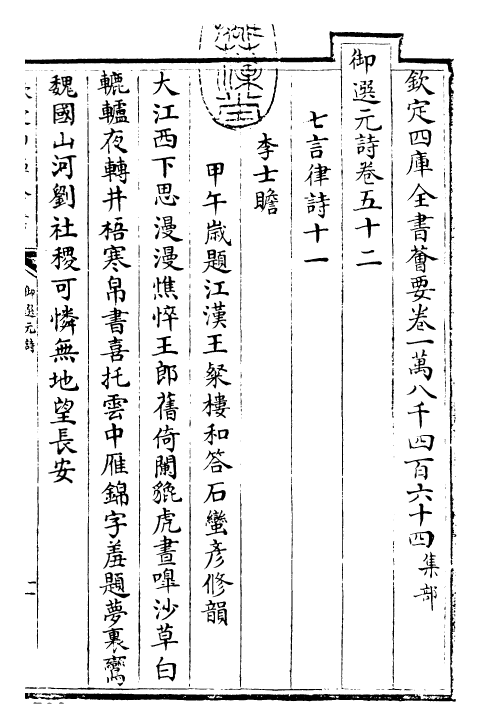 欽定四庫全書薈要卷一萬八千四百六十四集部
御選元詩卷五十二
七言律詩十一
李士瞻
甲午歲題江漢王粲樓和答石蠻彦修韻
大江西下思漫漫憔悴王郎舊倚闌貔虎晝嘷沙草白
轆轤夜轉井梧寒帛書喜托雲中雁錦字羞題夢裏鸞
魏國山河劉社稷可憐無地望長安
御選元詩